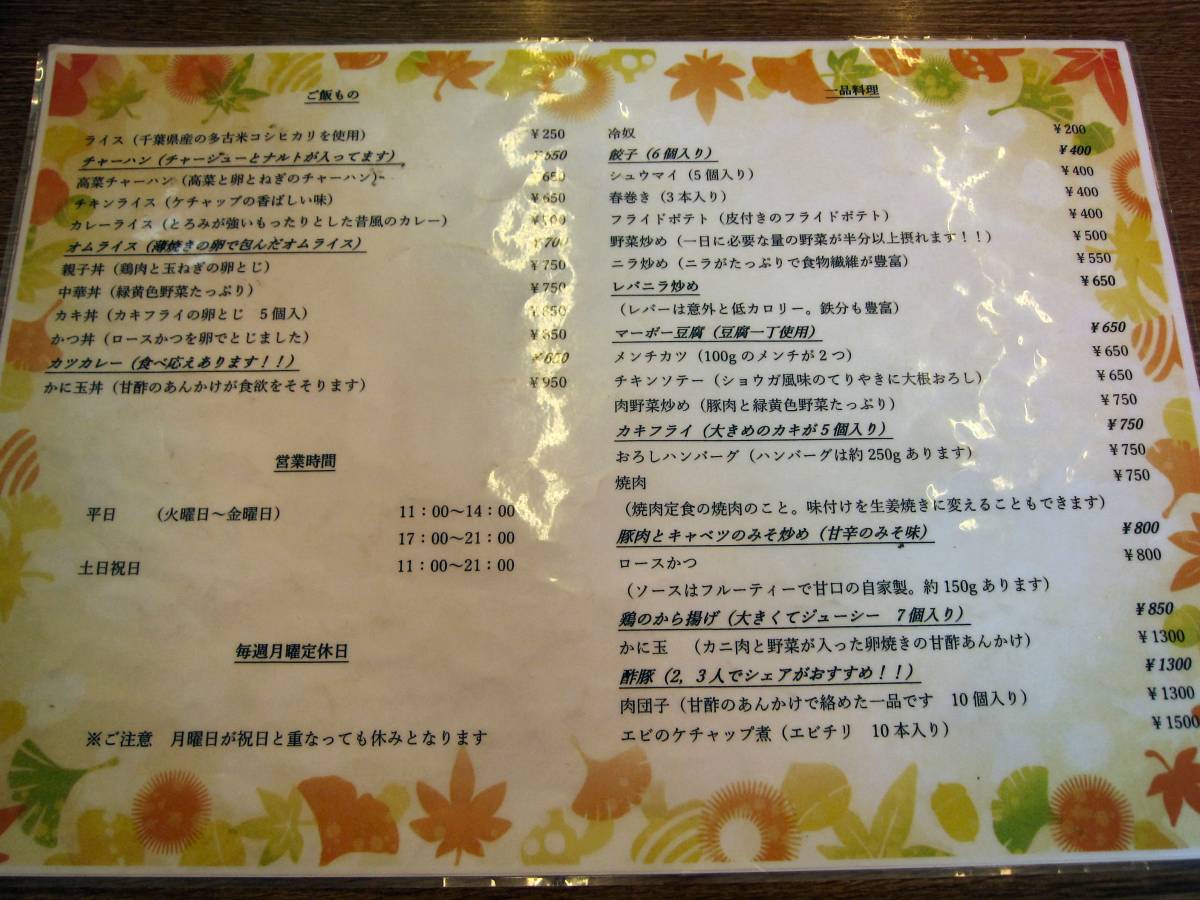 ご飯もの
ライス（千葉県産の多古米コシヒカリを使用） ￥250
チャーハン（チャーシューとナルトが入ってます） ￥650
高菜チャーハン（高菜と卵とねぎのチャーハン） ￥650
チキンライス（ケチャップの香ばしい味） ￥650
カレーライス（とろみが強いもったりとした昔風のカレー）
オムライス（薄焼きの卵で包んだオムライス） ￥700
親子丼（鶏肉と玉ねぎの卵とじ） ￥750
中華丼（緑黄色野菜たっぷり） ￥750
カキ丼（カキフライの卵とじ　5個入） ￥850
かつ丼（ロースかつを卵でとじました） ￥850
カツカレー（食べ応えあります！！）
かに玉丼（甘酢のあんかけが食欲をそそります） ￥950
営業時間
平日　（火曜日～金曜日） 11：00～14：00
17：00～21：00
土日祝日 11：00～21：00
毎週月曜定休日
※ご注意　月曜日が祝日と重なっても休みとなります
一品料理
冷奴 ￥200
餃子（6個入り） ￥400
シュウマイ（5個入り） ￥400
春巻き（3本入り） ￥400
フライドポテト（皮付きのフライドポテト） ￥400
野菜炒め（一日に必要な量の野菜が半分以上摂れます！！） ￥500
ニラ炒め（ニラがたっぷりで食物繊維が豊富） ￥550
レバニラ炒め ￥650
（レバーは意外と低カロリー。鉄分も豊富）
マーボー豆腐（豆腐一丁使用） ￥650
メンチカツ（100gのメンチが2つ） ￥650
チキンソテー（ショウガ風味のてりやきに大根おろし） ￥650
肉野菜炒め（豚肉と緑黄色野菜たっぷり） ￥750
カキフライ（大きめのカキが5個入り） ￥750
おろしハンバーグ（ハンバーグは約250gあります） ￥750
焼肉 ￥750
（焼肉定食の焼肉のこと。味付けを生姜焼きに変えることもできます）
豚肉とキャベツのみそ炒め（甘辛のみそ味） ￥800
ロースかつ ￥800
（ソースはフルーティーで甘口の自家製。約150gあります）
鶏のから揚げ（大きくてジューシー　7個入り） ￥850
かに玉　（カニ肉と野菜が入った卵焼きの甘酢あんかけ） ￥1300
酢豚（2，3人でシェアがおすすめ！！） ￥1300
肉団子（甘酢のあんかけで絡めた一品です　10個入り） ￥1300
エビのケチャップ煮（エビチリ　10本入り） ￥1500